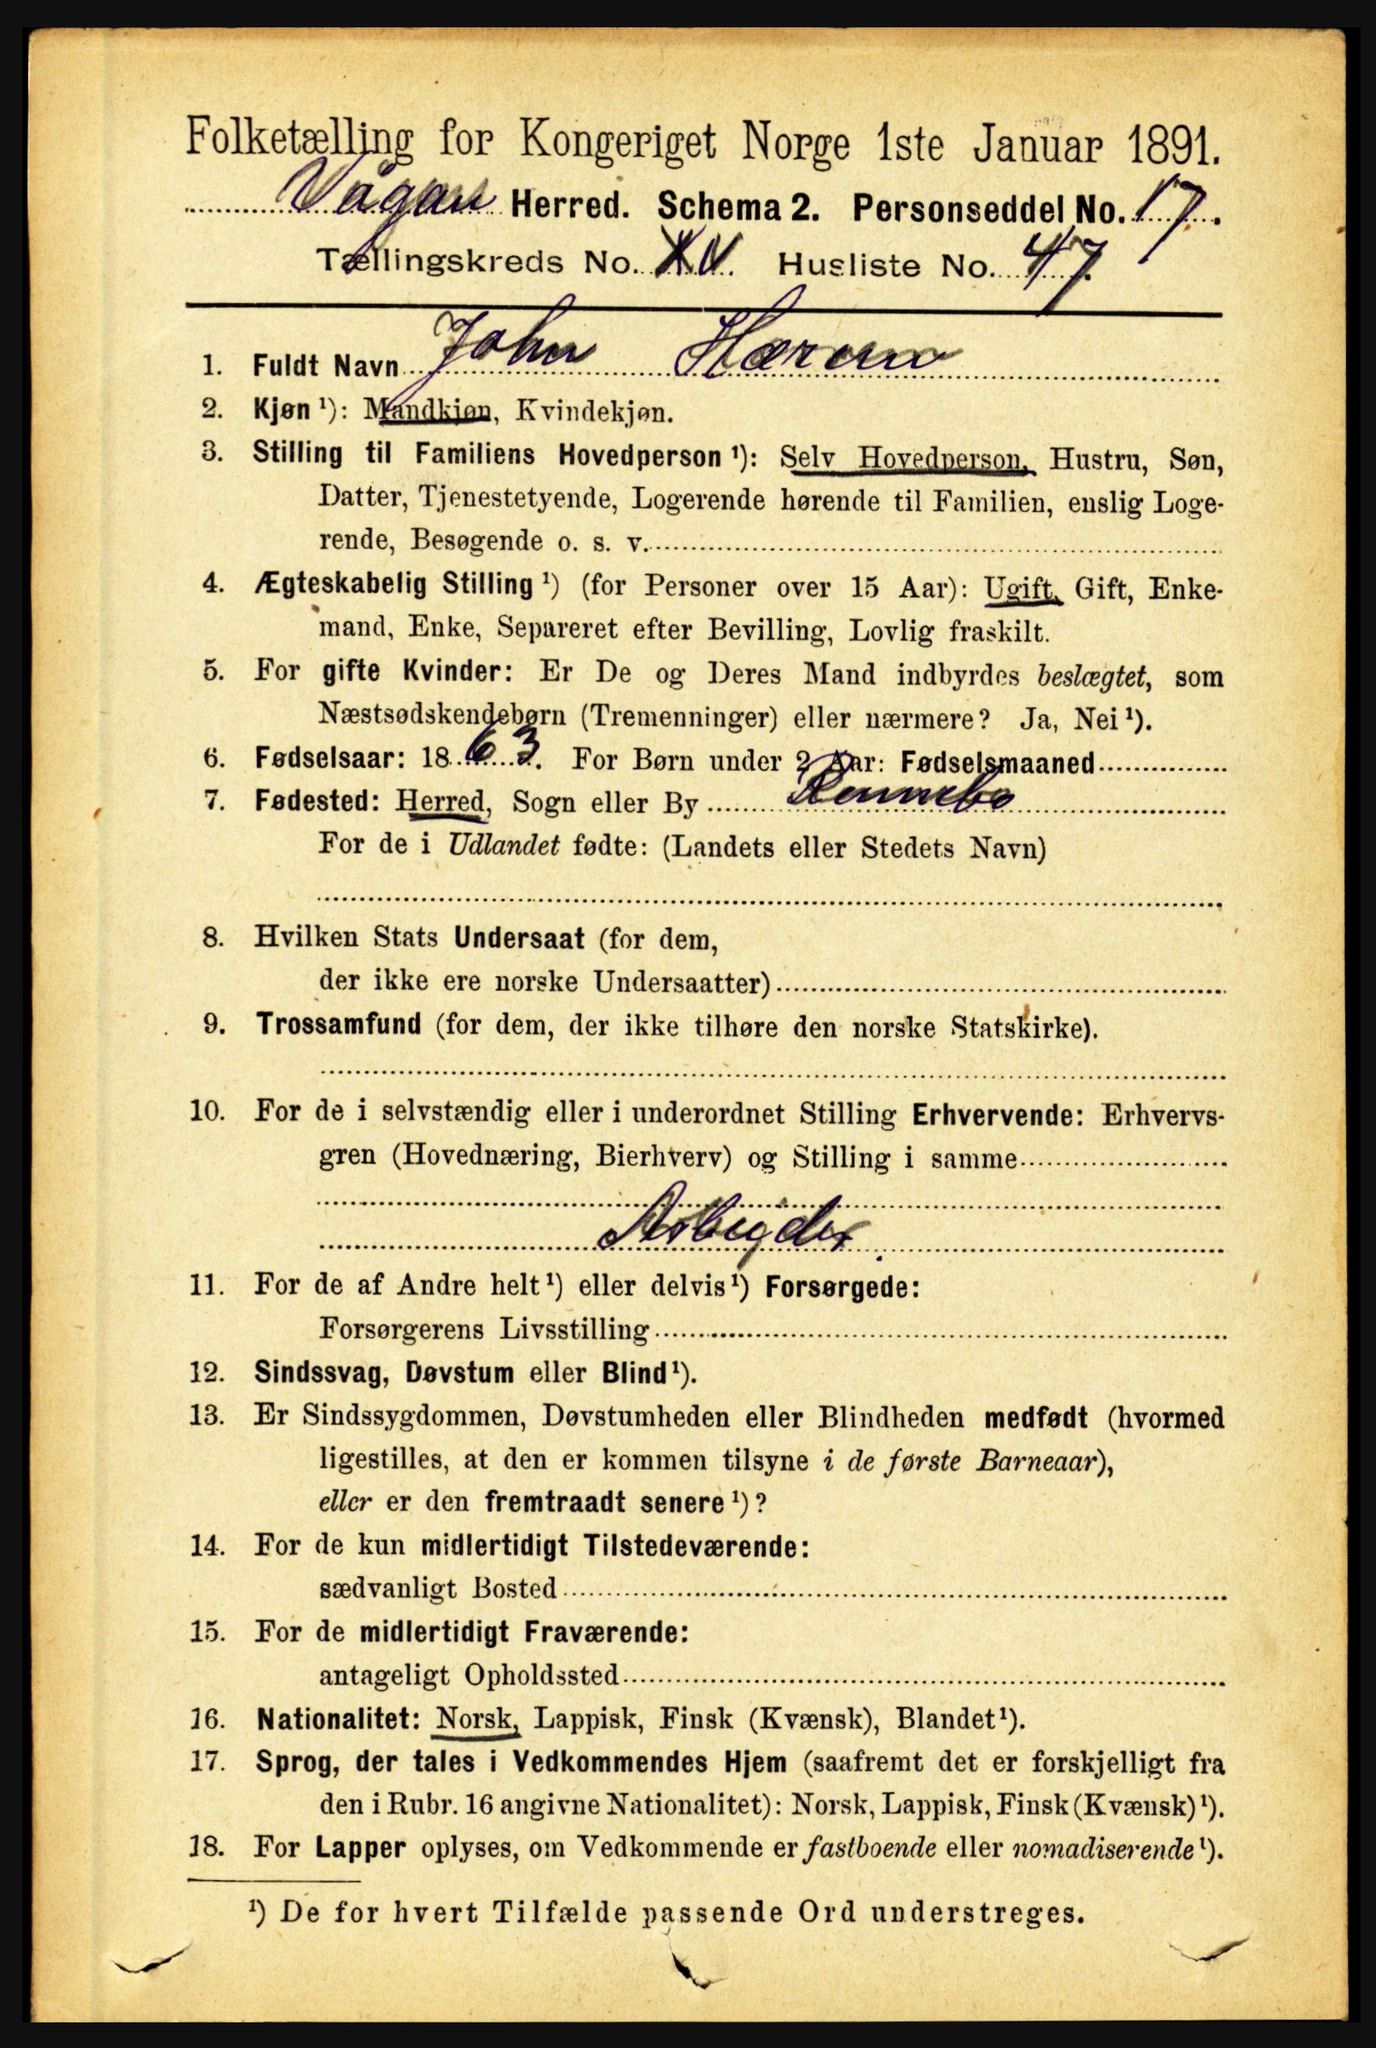 Folketælling for Kongeriget Norge 1ste Januar 1891.
Vågan Herred. Schema 2. Personseddel No. 17.
Tællingskreds No. XV. Husliste No. 47.
1. Fuldt Navn John Hærem
2. Kjøn ¹): Mandkjøn, Kvindekjøn.
3. Stilling til Familiens Hovedperson ¹): Selv Hovedperson, Hustru, Søn,
Datter, Tjenestetyende, Logerende hørende til Familien, enslig Loge-
rende, Besøgende o. s. v.
4. Ægteskabelig Stilling ¹) (for Personer over 15 Aar): Ugift, Gift, Enke-
mand, Enke, Separeret efter Bevilling, Lovlig fraskilt.
5. For gifte Kvinder: Er De og Deres Mand indbyrdes beslægtet, som
Næstsødskendebørn (Tremenninger) eller nærmere? Ja, Nei ¹).
6. Fødselsaar: 1863. For Børn under 2 Aar: Fødselsmaaned
7. Fødested: Herred, Sogn eller By Rennebo
For de i Udlandet fødte: (Landets eller Stedets Navn)
8. Hvilken Stats Undersaat (for dem,
der ikke ere norske Undersaatter)
9. Trossamfund (for dem, der ikke tilhøre den norske Statskirke).
10. For de i selvstændig eller i underordnet Stilling Erhvervende: Erhvervs-
gren (Hovednæring, Bierhverv) og Stilling i samme
Arbeider
11. For de af Andre helt ¹) eller delvis ¹) Forsørgede:
Forsørgerens Livsstilling
12. Sindssvag, Døvstum eller Blind ¹).
13. Er Sindssygdommen, Døvstumheden eller Blindheden medfødt (hvormed
ligestilles, at den er kommen tilsyne i de første Barneaar),
eller er den fremtraadt senere ¹)?
14. For de kun midlertidigt Tilstedeværende:
sædvanligt Bosted
15. For de midlertidigt Fraværende:
antageligt Opholdssted
16. Nationalitet: Norsk, Lappisk, Finsk (Kvænsk), Blandet ¹).
17. Sprog, der tales i Vedkommendes Hjem (saafremt det er forskjelligt fra
den i Rubr. 16 angivne Nationalitet): Norsk, Lappisk, Finsk (Kvænsk) ¹).
18. For Lapper oplyses, om Vedkommende er fastboende eller nomadiserende ¹).
¹) De for hvert Tilfælde passende Ord understreges.